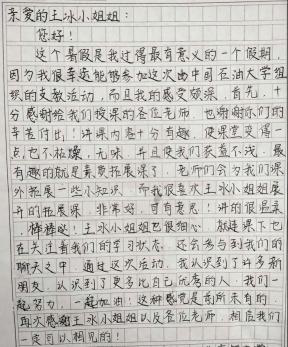 亲爱的王冰小姐姐：
您好！
这个暑假是我过得最有意义的一个假期，
因为我很幸运能够参加这次由中国石油大学组
织的支教活动，而且我的感受颇深。首先，十
分感谢给我们授课的各位老师，也谢谢你们的
辛苦付出！讲课内容十分有趣，使课堂变得一
点也不枯燥、无味，并且使我们获益不浅。最
有趣的就是素质拓展课了，老师们会为我们课
外拓展一些小知识，而我很喜欢王冰小姐姐展
开的拓展课，非常好，可有意思！讲的很温柔
，棒棒哒！王冰小姐姐也很细心，就连课下也
在关注着我们的学习状态，还会参与到我们的
聊天之中，通过这次活动，我认识到了许多新
朋友，认识到了更多比自己优秀的人，我们一
起努力，一起加油！这种感觉是前所未有的，
再次感谢王冰小姐姐以及各位老师，相信我们
一定可以相见的！